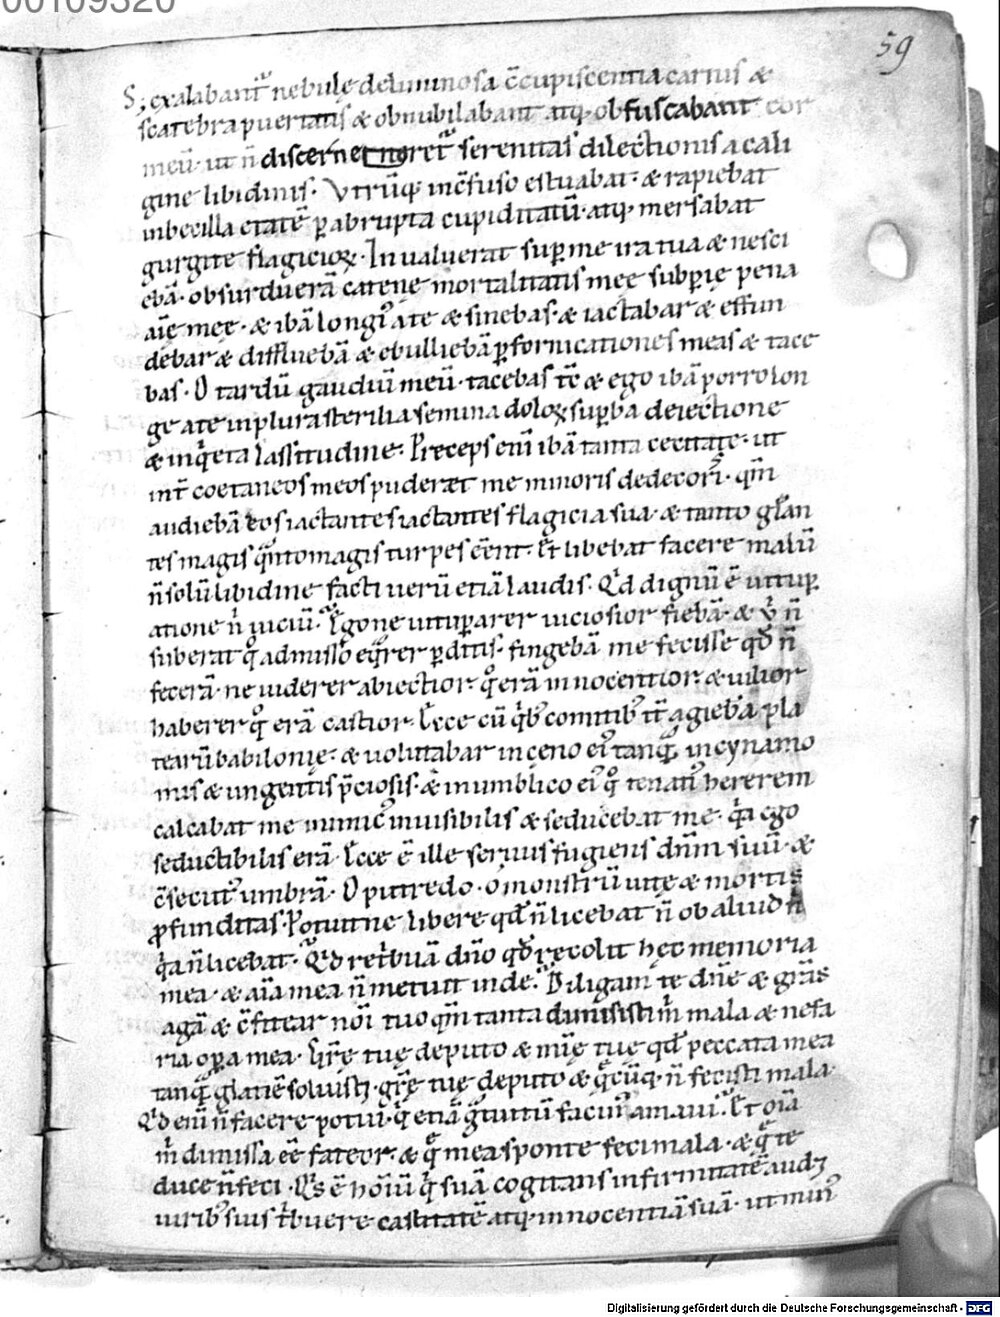 00109320
59
S; exalabant̃ nebulę de luminosa c̃cupiscentia carnis &
scatebra pubertatis & obnubilabant atq; obfuscabant cor
meũ ut ñ discerneretur serenitas dilectionis a cali
gine libidinis. Vtrũq; inc̃fuso estuabat. & rapiebat
inbecilla etatẽ p abrupta cupiditatũ. atq; mersabat
gurgite flagicioꝝ. Inualuerat sup me ira tua & nesci
ebã. obsurduerã catene mortalitatis meę subpię pena
aĩe meę. & ibã longi' a te & sinebas. & iactabar & effun
debar & diffluebã & ebulliebã p fornicationes meas & tace
bas. O tardũ gaudiũ meũ. tacebas tc̃ & ego ibã porro lon
ge a te in plura sterilia semina doloꝝ supba deiectione
& inq'eta lassitudine. Preceps eni ibã tanta cecitate. ut
int̃ coetaneos meos puderet me minoris dedecoris. qm̃
audiebã eos iactantes iactantes flagicia sua. & tanto glan
tes magis q̃nto magis turpes eẽnt. Et libebat facere malũ
ñ solũ libidine facti uerũ etiã laudis. Q'd dignũ ẽ uitup
atione ñ uiciũ. Ego ne uituparer uiciosior fiebã. & ubi ñ
suberat qo admisso eq̃rer pditis. fingebã me fecisse qd ñ
fecerã. ne uiderer abiectior. qo erã innocentior. & uilior
haberer qo erã castior. Ecce cũ q'b' comitib' it̃ agebã pla
tearũ babilonię. & uolutabar in ceno ei' tanq̃ in cynamo
mis & ungentis p̃ciosis. & in umblico ei' qo tenati' hererem
calcabat me inimic' inuisibilis & seducebat me. q'a ego
seductibilis erã. Ecce ẽ ille seruus fugiens dñm suũ. &
c̃secut' umbrã. O putredo. o monstrũ uitę & mortis
pfunditas. Potuit ne libere qd ñ licebat ñ ob aliud ñ
q'a ñ licebat. Q'd ret'buã dño qd recolit hęc memoria
mea. & aĩa mea ñ metuit inde. Diligam te dñe & grãs
agã & c̃fitear nõi tuo qm̃ tanta dimisisti m' mala & nefa
ria opa mea. Grẽ tuę deputo & mię tuę qd peccata mea
tanq̃ glatiẽ soluisti. grẽ tuę deputo & q̃cũq; ñ fecisti mala.
Q'd eni ñ facere potui. q' etiã g̃tuitũ facin' amaui. Et oĩa
m' dimissa eẽ fateor. & q̃ mea sponte feci mala. & q̃ te
duce ñ feci. Q's ẽ hoĩũ q' suã cogitans infirmitatẽ audꝫ
uirib' suis t'buere castitatẽ atq; innocentiã suã. ut min'
Digitalisierung gefördert durch die Deutsche Forschungsgemeinschaft - DFG